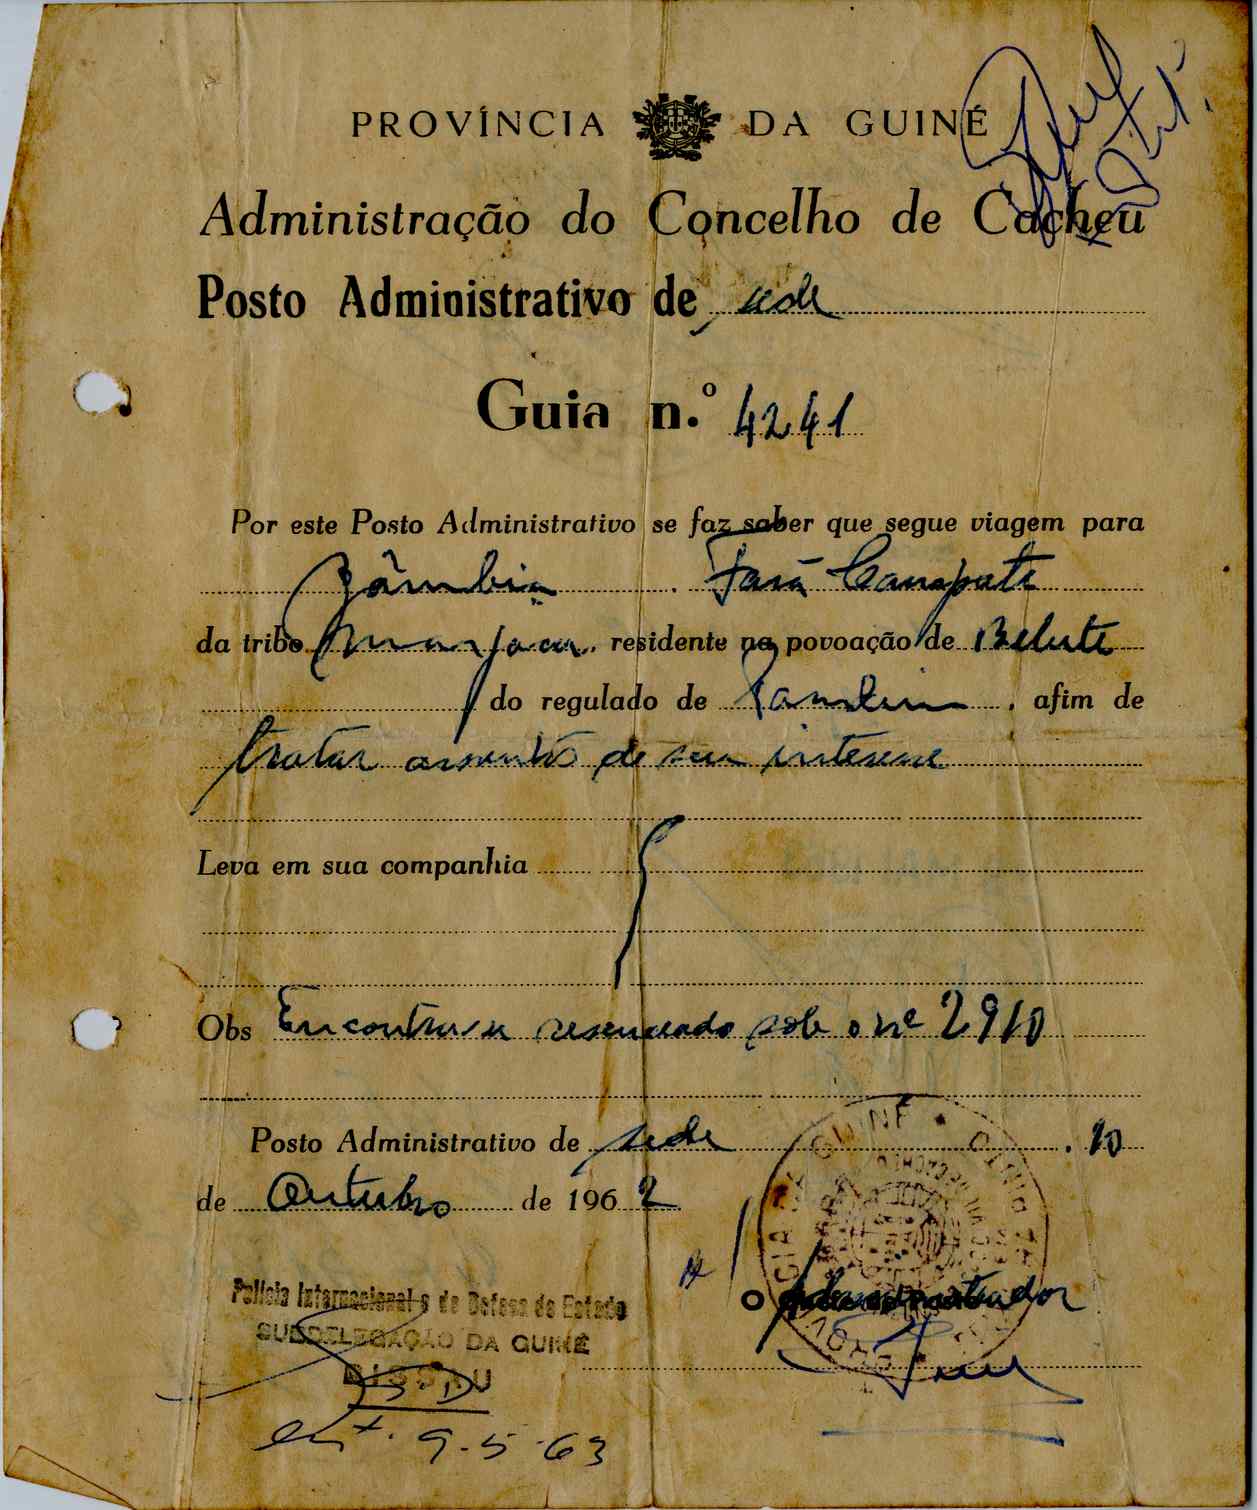 PROVÍNCIA DA GUINÉ
Administração do Concelho de Cacheu
Posto Administrativo de sede
Guia n.º 4241
Por este Posto Administrativo se faz saber que segue viagem para
Zâmbia. Canapate
da tribo Manjaca, residente na povoação de Belute
do regulado de, afim de
tratar assuntos de seu interesse
Leva em sua companhia
Obs Encontra-se recenseado sob o nº 2910
Posto Administrativo de sede. 10
de Outubro de 1962
O Administrador
Policia Internacional e de Defesa do Estado
SUBDELEGAÇÃO DA GUINÉ
BISSAU
9-5-63